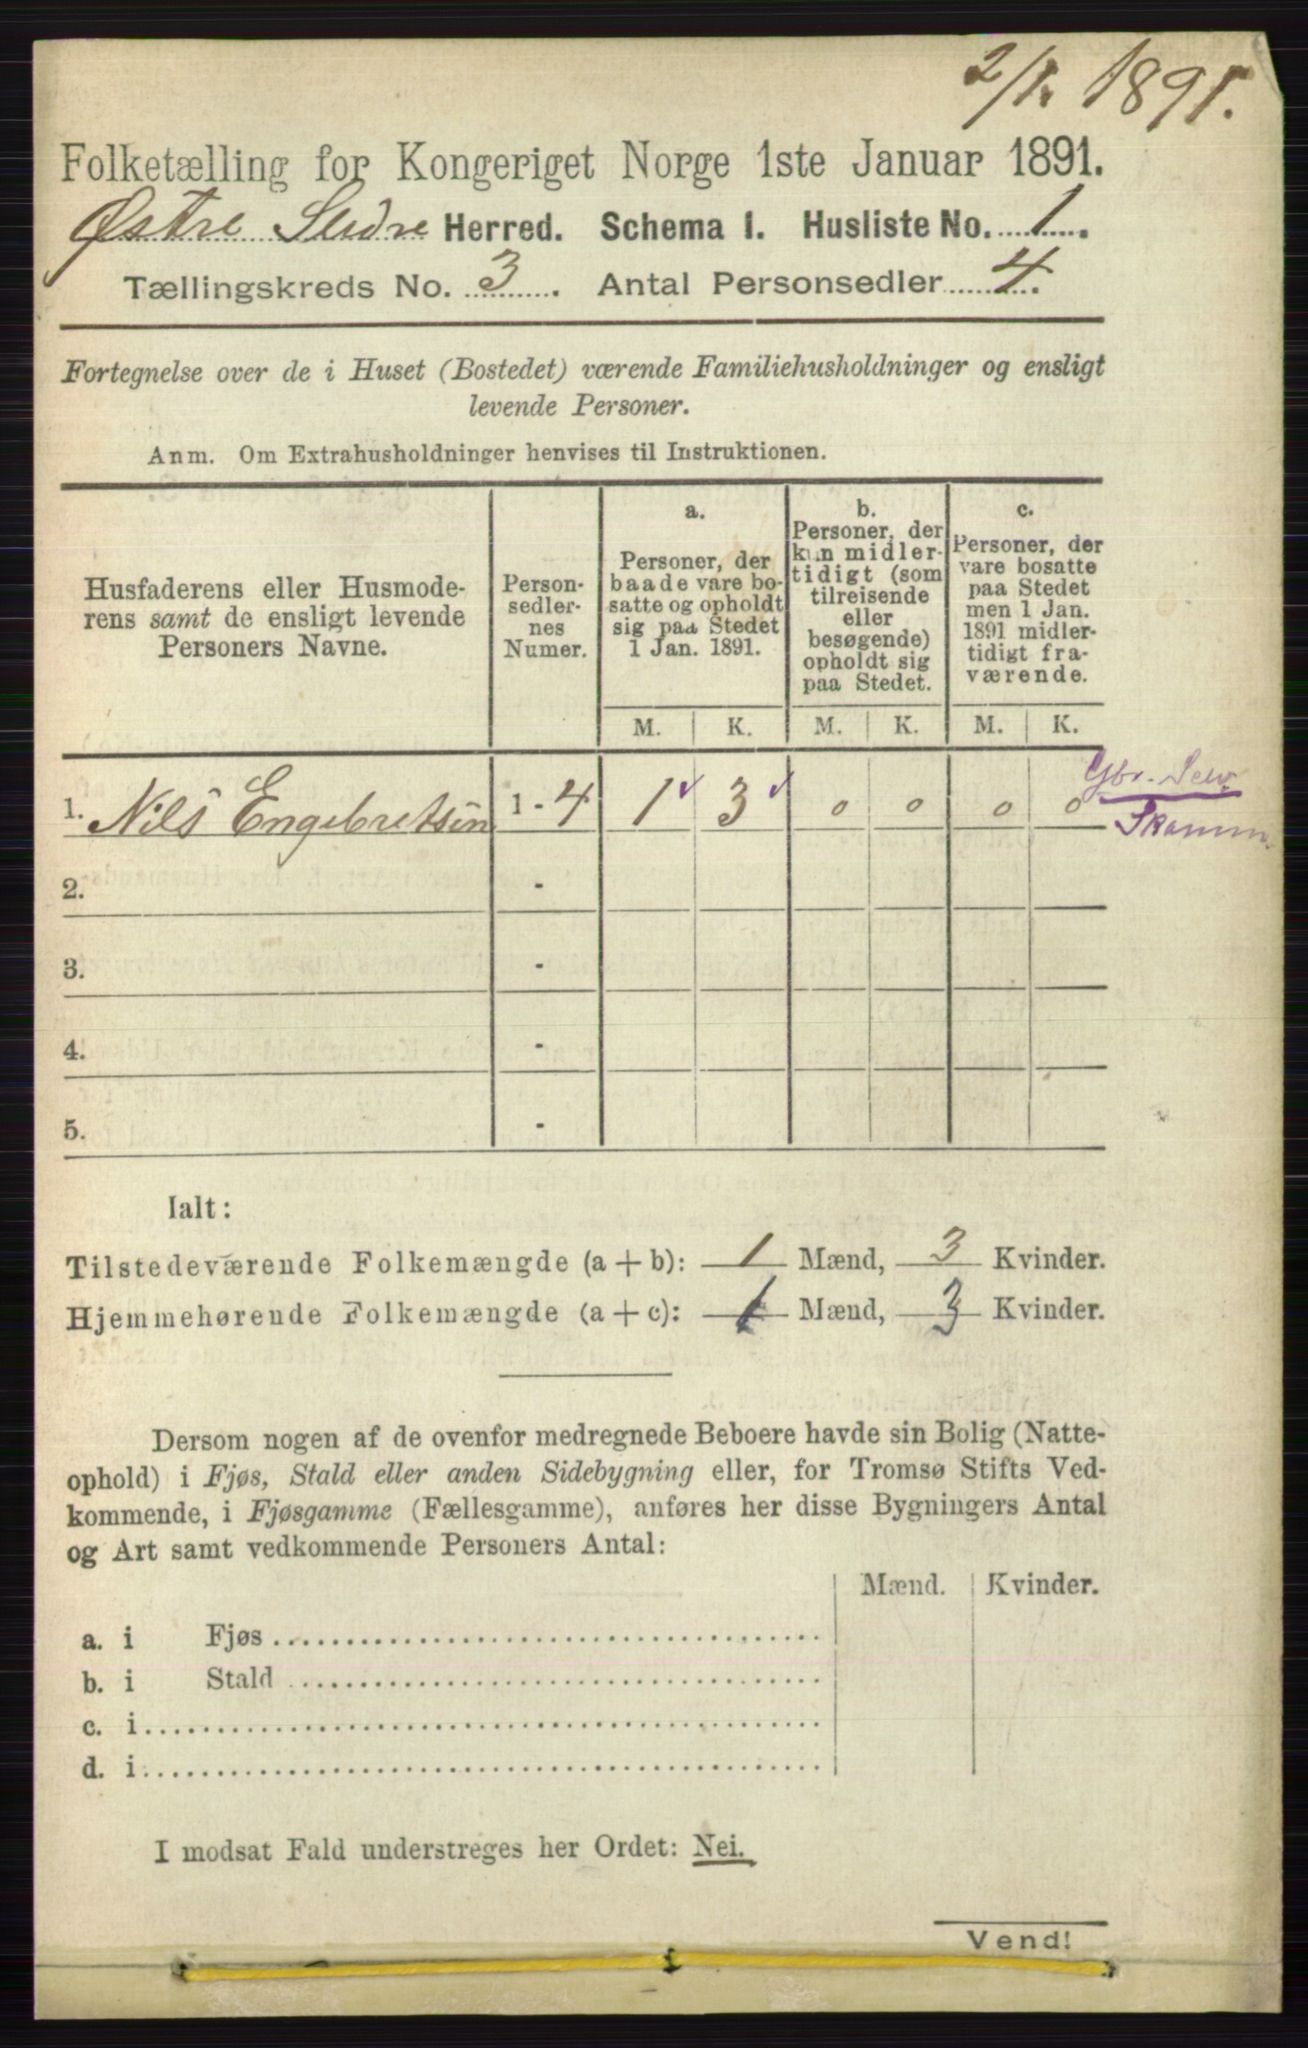 2/1. 1891.
Folketælling for Kongeriget Norge 1ste Januar 1891.
Østre Slidre Herred. Schema I. Husliste No. 1.
Tællingskreds No. 3. Antal Personsedler 4.
Fortegnelse over de i Huset (Bostedet) værende Familiehusholdninger og ensligt
levende Personer.
Anm. Om Extrahusholdninger henvises til Instruktionen.
Husfaderens eller Husmode-
rens samt de ensligt levende
Personers Navne.
Person-
sedler-
nes
Numer.
a.
Personer, der
baade vare bo-
satte og opholdt
sig paa Stedet
1 Jan. 1891.
b.
Personer, der
kun midler-
tidigt (som
tilreisende
eller
besøgende)
opholdt sig
paa Stedet.
c.
Personer, der
vare bosatte
paa Stedet
men 1 Jan.
1891 midler-
tidigt fra-
værende.
M. K. M. K. M. K.
1. Nils Engebretsen 1 - 4 1 3 0 0 0 0
Gbr. Selv.
2. -
3. -
4. -
5. -
Ialt:
Tilstedeværende Folkemængde (a + b): 1 Mænd, 3 Kvinder.
Hjemmehørende Folkemængde (a + c): 1 Mænd, 3 Kvinder.
Dersom nogen af de ovenfor medregnede Beboere havde sin Bolig (Natte-
ophold) i Fjøs, Stald eller anden Sidebygning eller, for Tromsø Stifts Ved-
kommende, i Fjøsgamme (Fællesgamme), anføres her disse Bygningers Antal
og Art samt vedkommende Personers Antal:
Mænd. Kvinder.
a. i Fjøs
b. i Stald
c. i
d. i
I modsat Fald understreges her Ordet: Nei.
Vend!